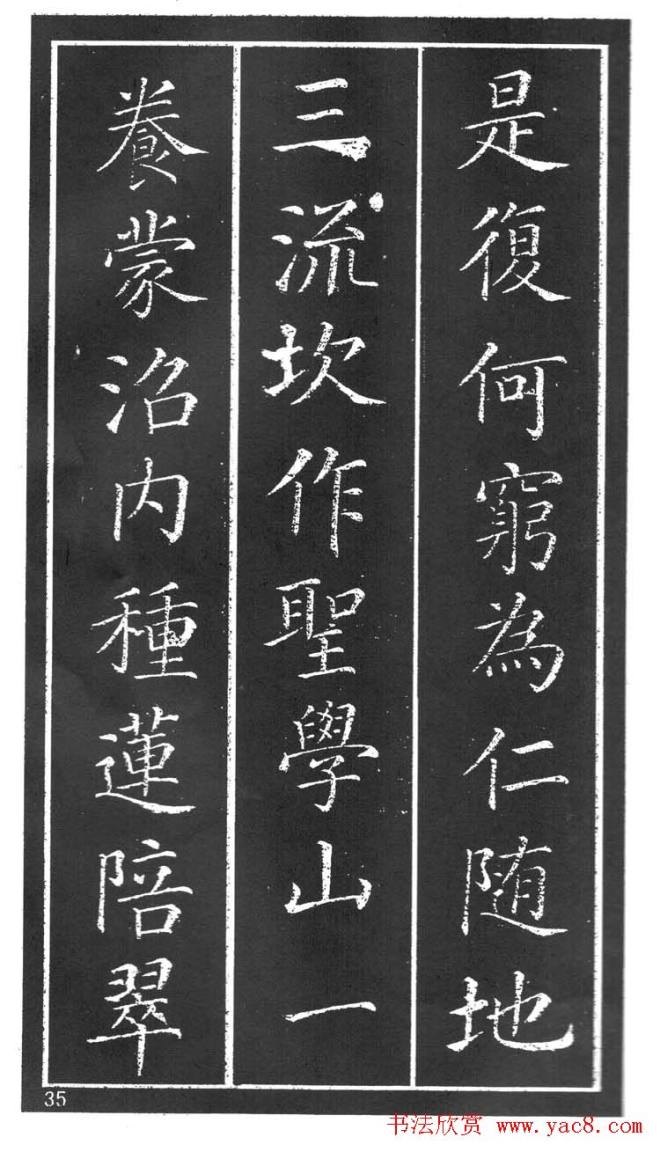 是復何窮為仁随地
三流坎作聖學山一
養蒙沼内種蓮陪翠
35
书法欣赏 www.yac8.com